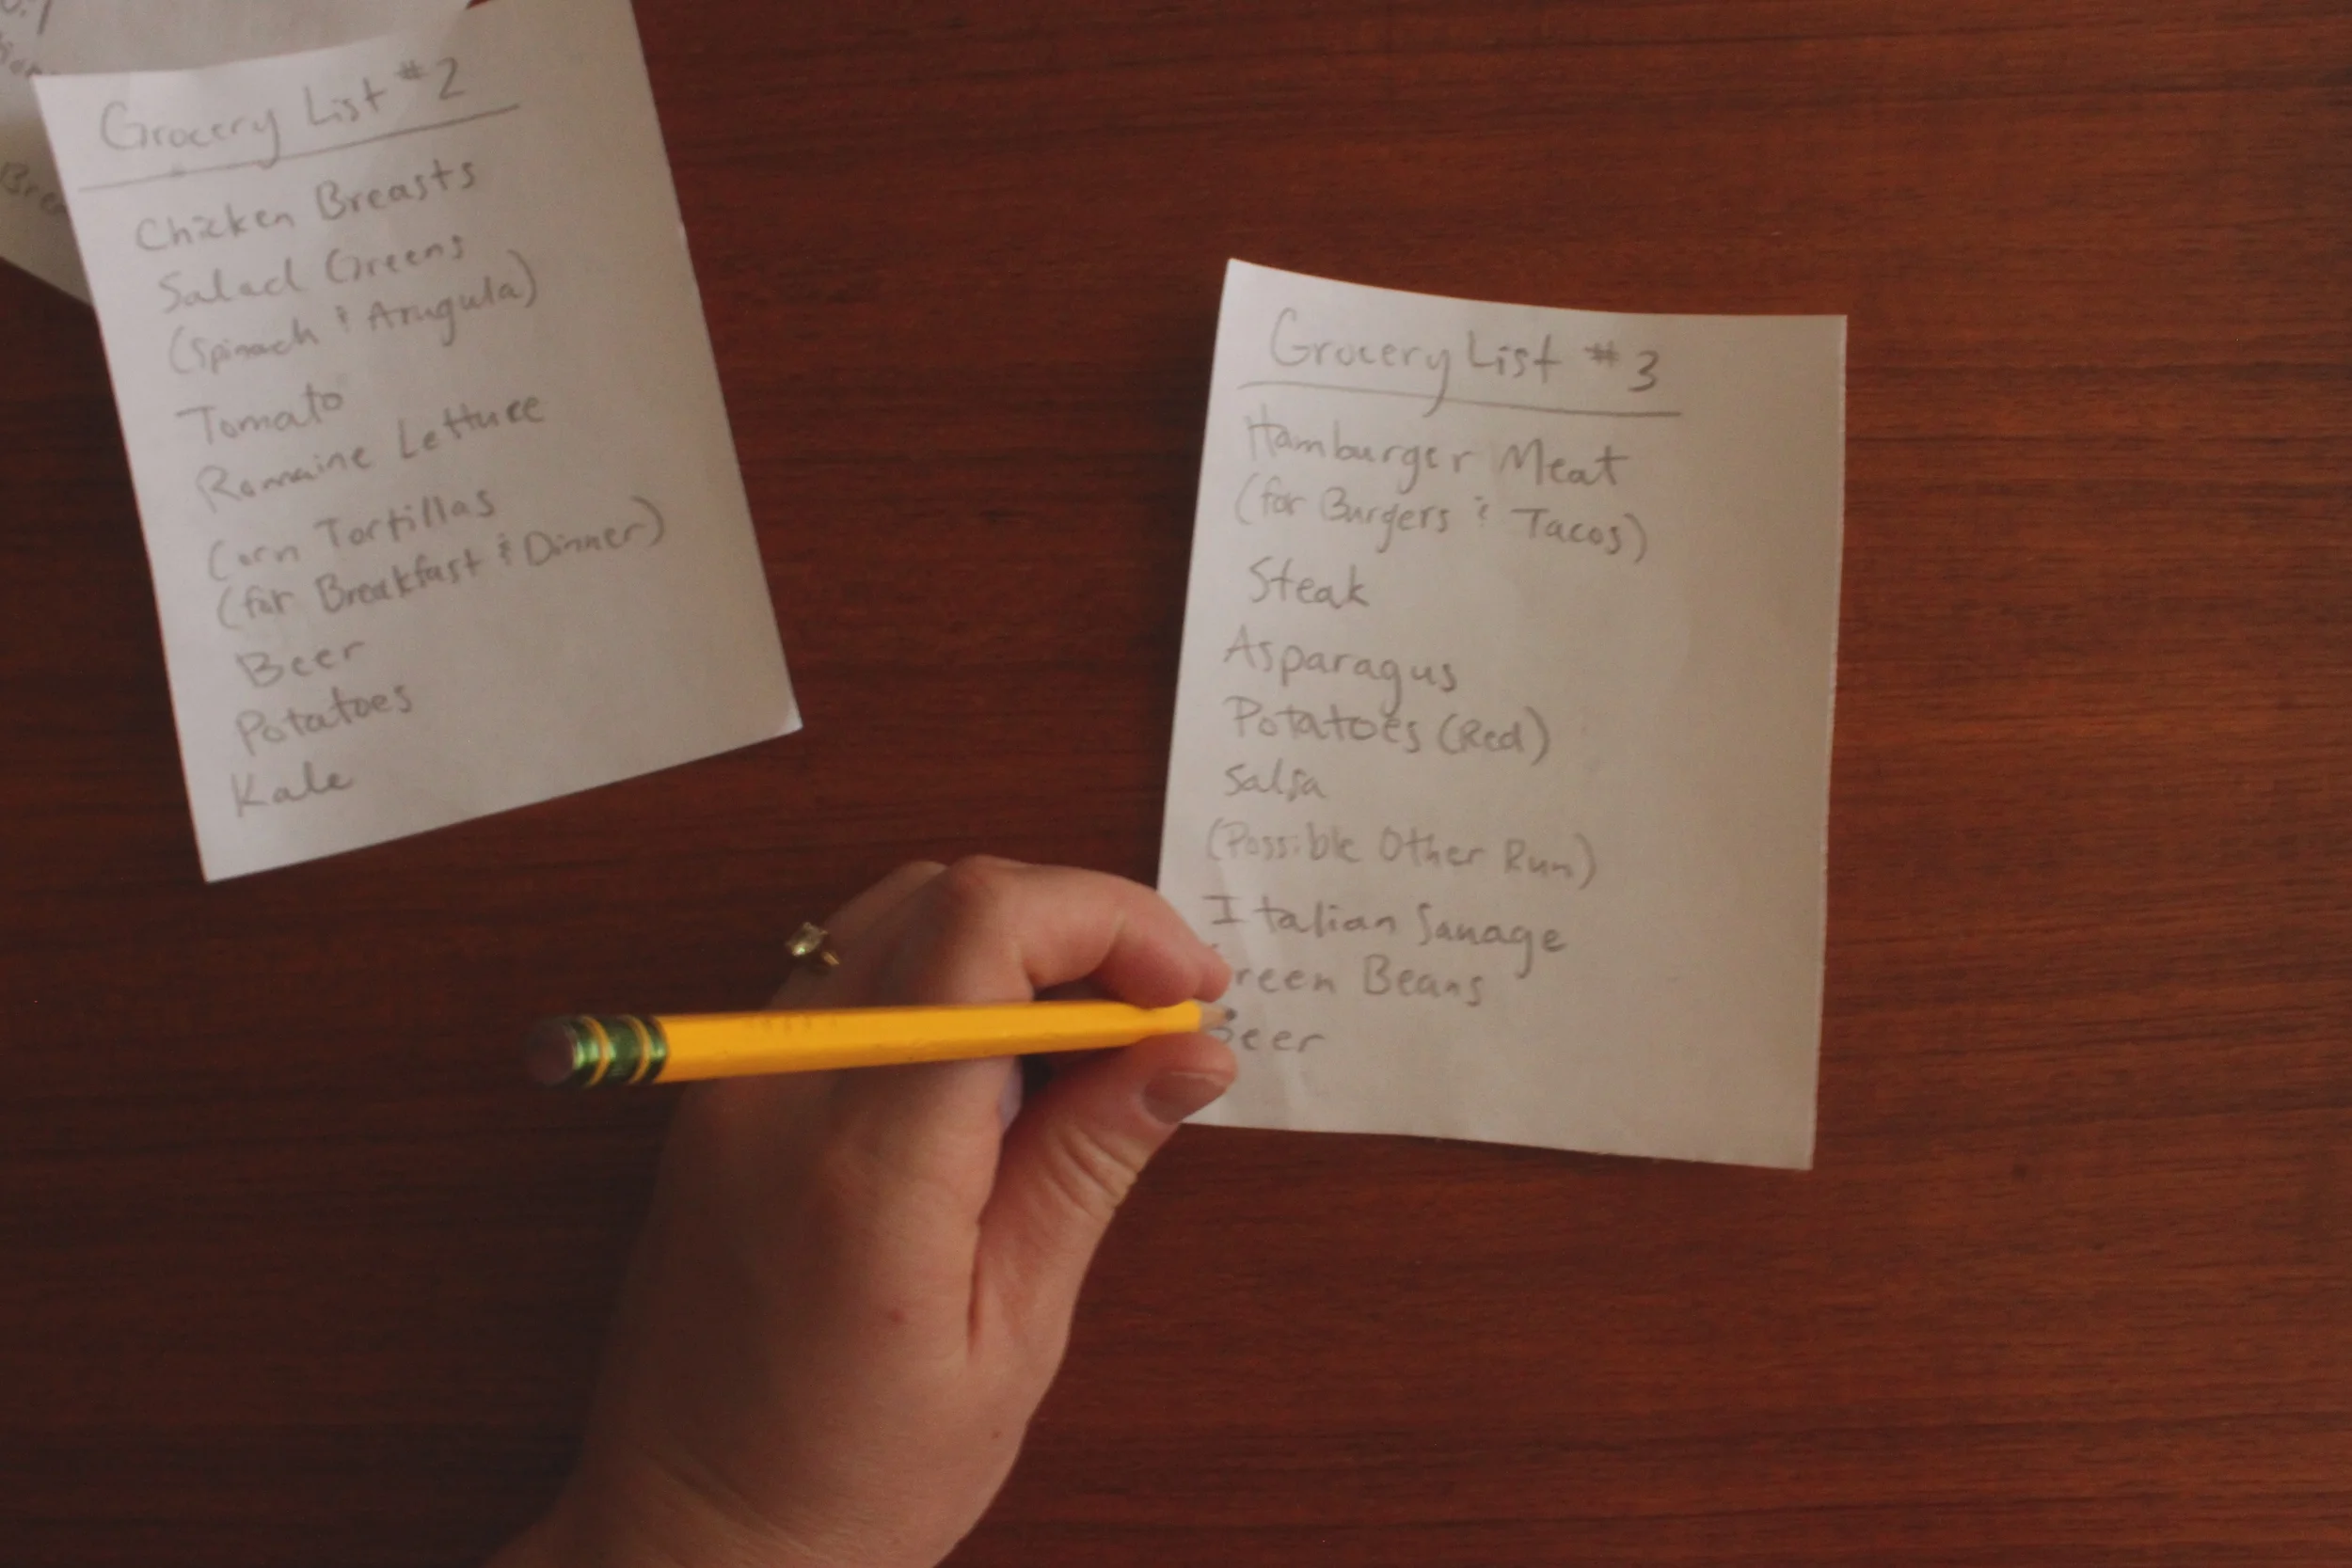 Grocery List #2
Chicken Breasts
Salad Greens
(Spinach & Arugula)
Tomato
Romaine Lettuce
Corn Tortillas
(for Breakfast & Dinner)
Beer
Potatoes
Kale
Grocery List #3
Hamburger Meat
(for Burgers & Tacos)
Steak
Asparagus
Potatoes (Red)
Salsa
(Possible Other Run)
Italian Sausage
Green Beans
Beer